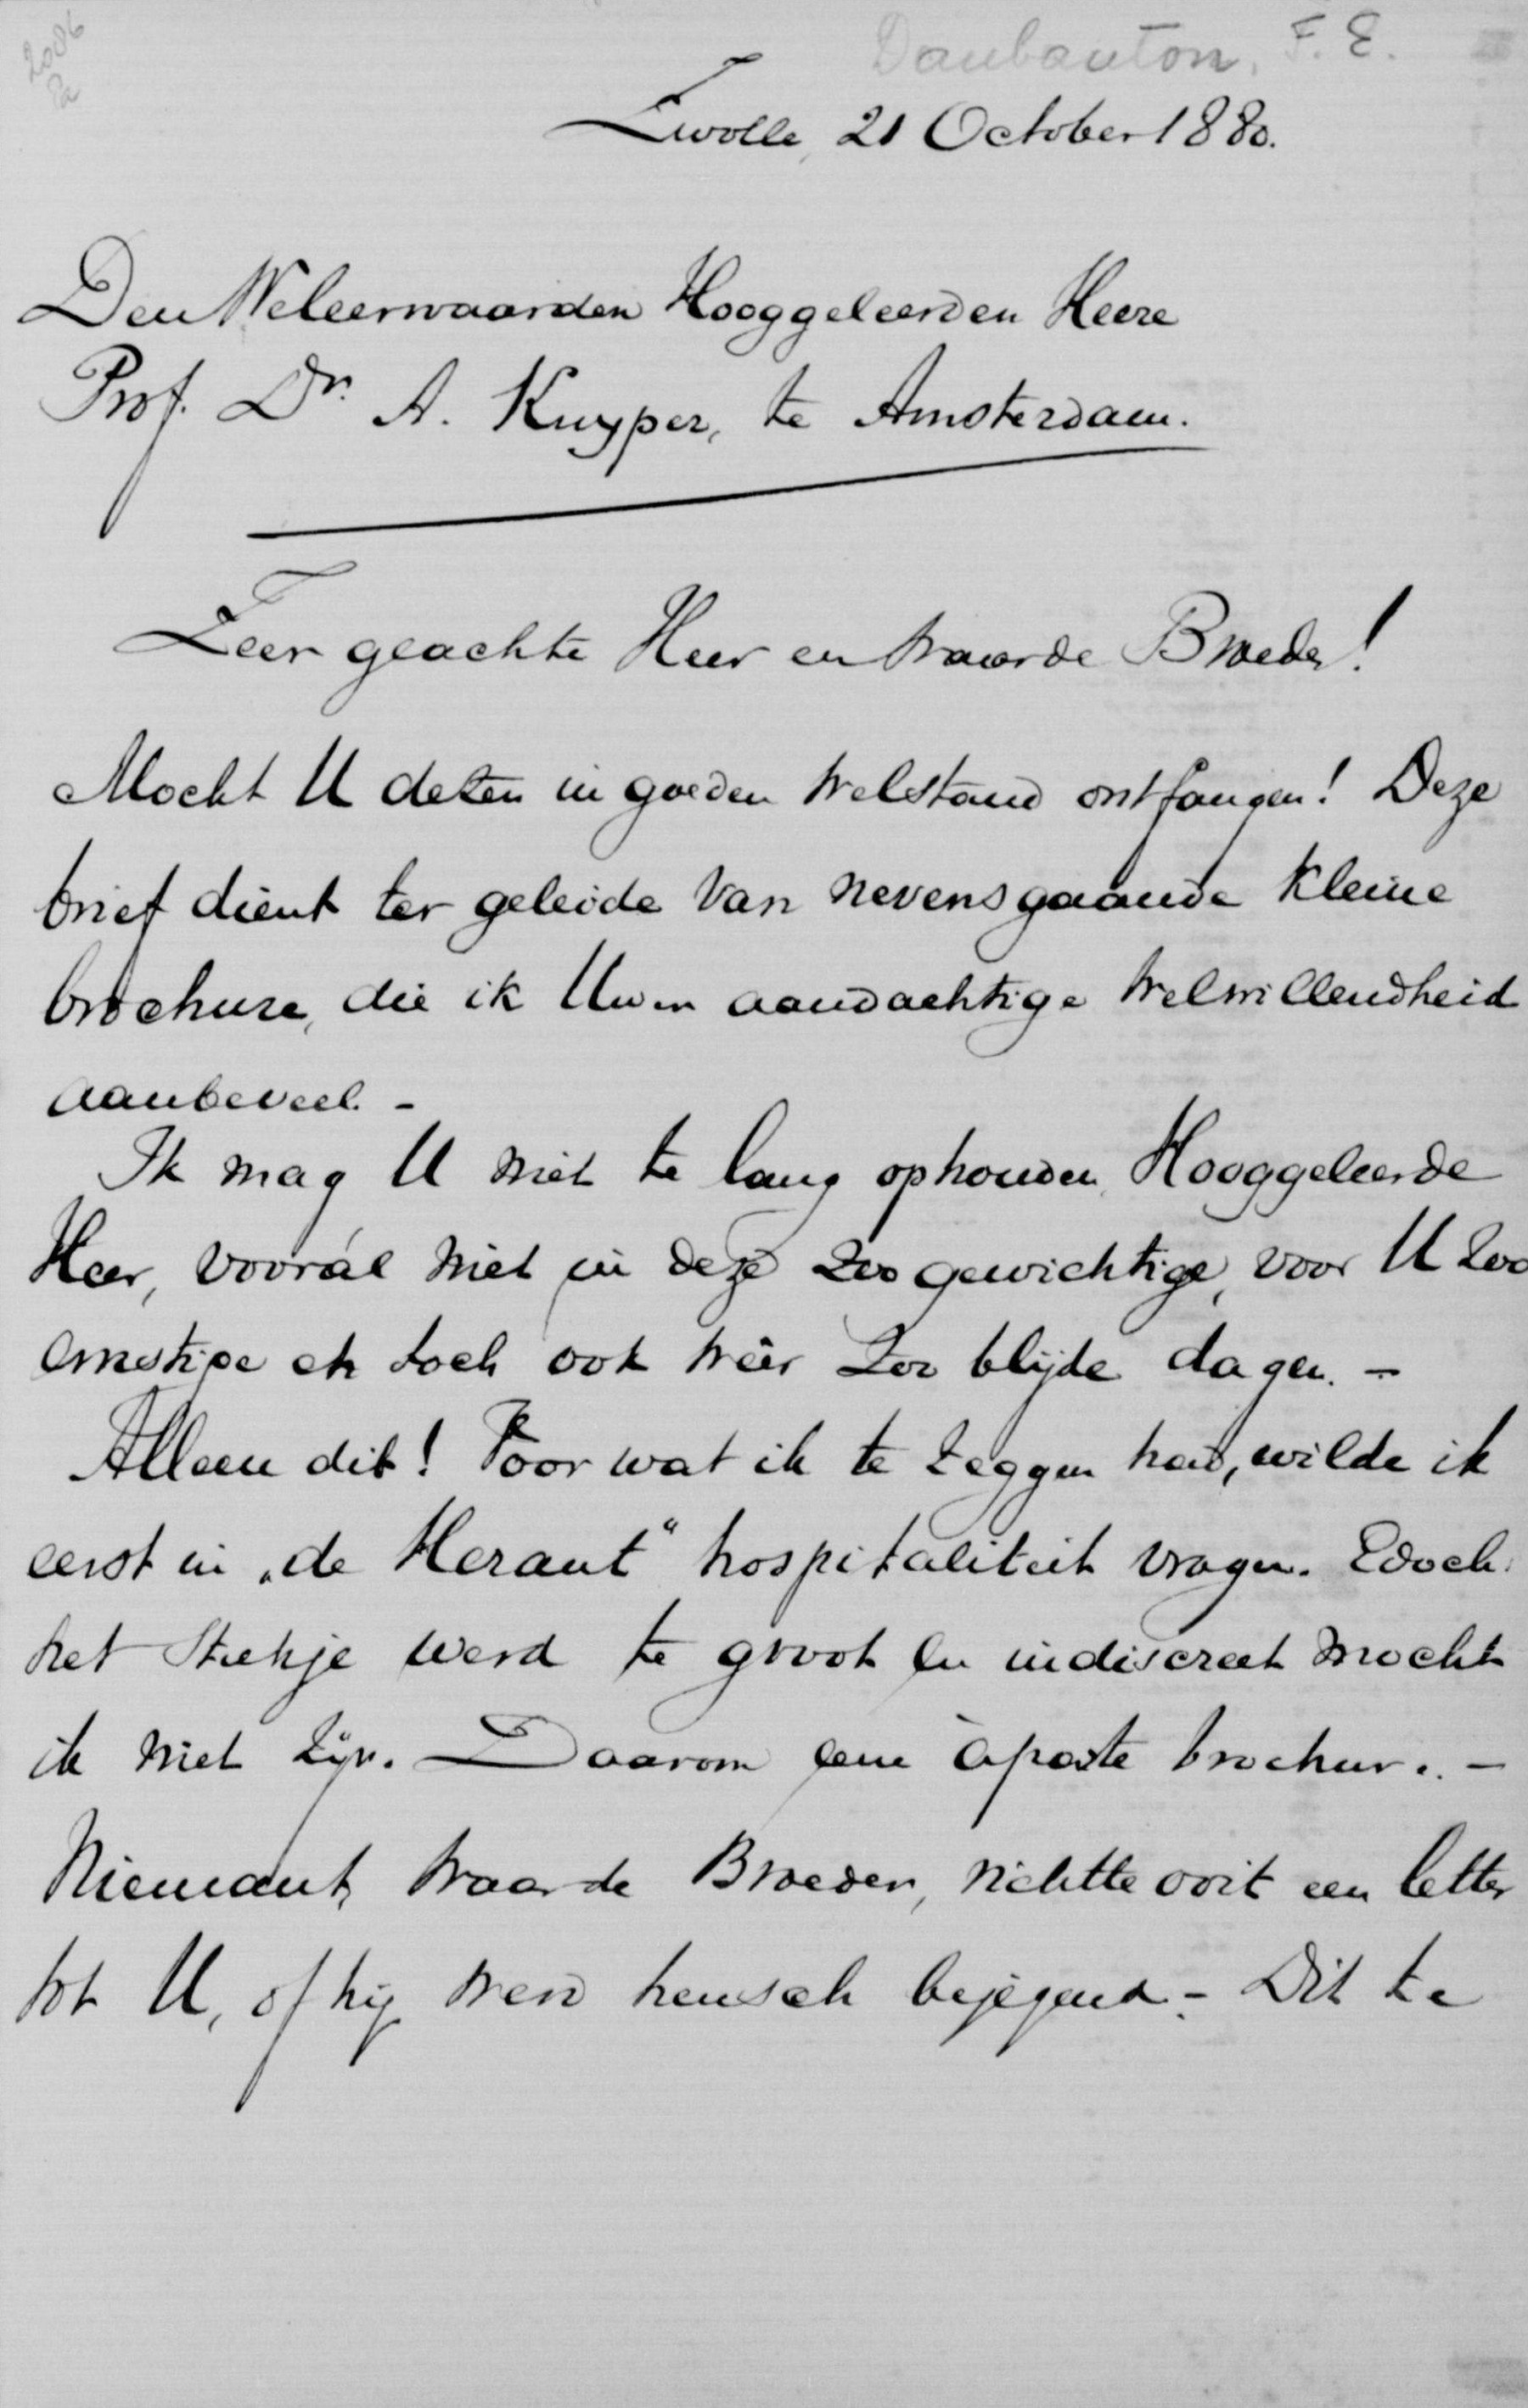 2006
2a
Daubanton, F. E.
Zwolle, 21 October 1880.
Den Weleerwaarden Hooggeleerden Heere
Prof. Dr. A. Kuyper, te Amsterdam.
Zeer geachte Heer en waarde Broeder!
Mocht U dezen in goeden welstand ontfangen! Deze
brief dient ter geleide van nevensgaande kleine
brochure, die ik Uwen aandachtige welwillendheid
aanbeveel. -
Ik mag U niet te lang ophouden, Hooggeleerde
Heer, voorál niet in deze zoo gewichtige, voor U zoo
ernstige en toch ook wêer zoo blijde dagen. -
Alleen dit! Voor wat ik te zeggen had, wilde ik
eerst in „de Heraut" hospitaliteit vragen. Edoch.
het stukje werd te groot en indiscreet mocht
ik niet zijn. Daarom eene àparte brochure. -
Niemant, waarde Broeder, richtte ooit een letter
tot U, of hij werd heusch bejegend. - Dit te